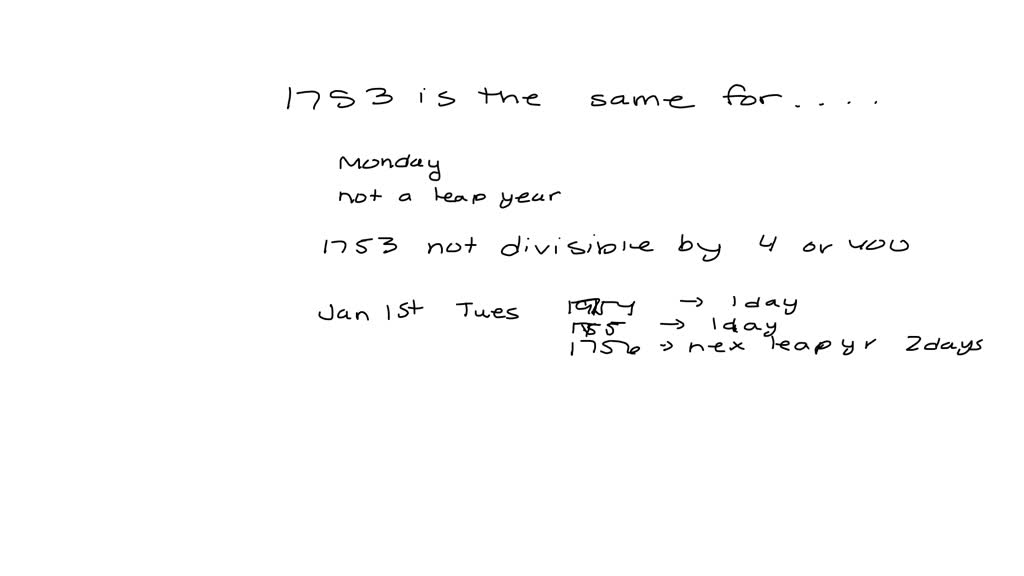 1753 is the same for....
Monday
not a leap year
1753 not divisible by 4 or 400
Jan 1st Tues → 1 day
1755 → 1 day
1756 → nex leap yr 2days